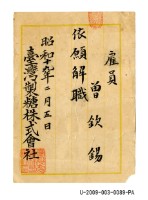 雇員
曽欽錫
依願解職
昭和十九年二月五日
臺灣製糖株式會社
U-2009-003-0089-PA